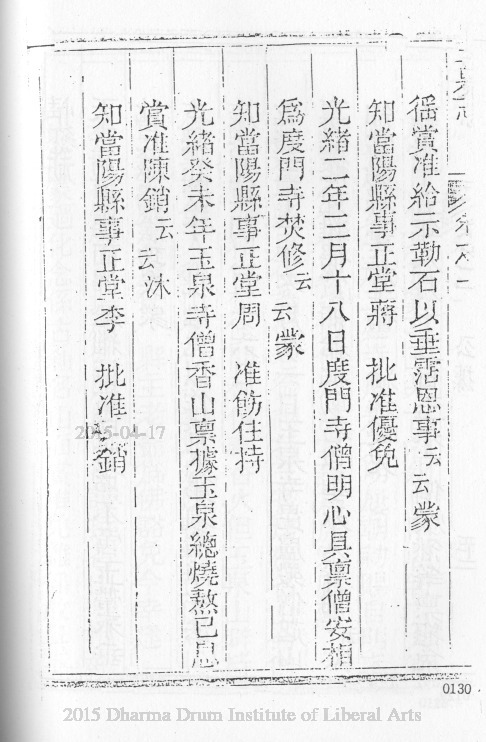 徭賞准給示勒石以垂霑恩事云云蒙
知當陽縣事正堂蔣　批准優免
光緒二年三月十八日度門寺僧明心具稟僧安相
為度門寺焚修云云蒙
知當陽縣事正堂周　准飭住持
光緒癸未年玉泉寺僧香山稟據玉泉總燒熬已息
賞准陳銷云云沐
知當陽縣事正堂李　批准銷
2015-04-17
0130
2015 Dharma Drum Institute of Liberal Arts